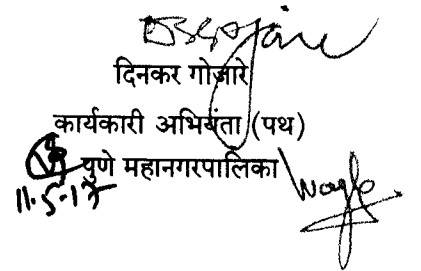 दिनकर गोजारे
कार्यकारी अभियंता (पथ)
पुणे महानगरपालिका
11.5.17